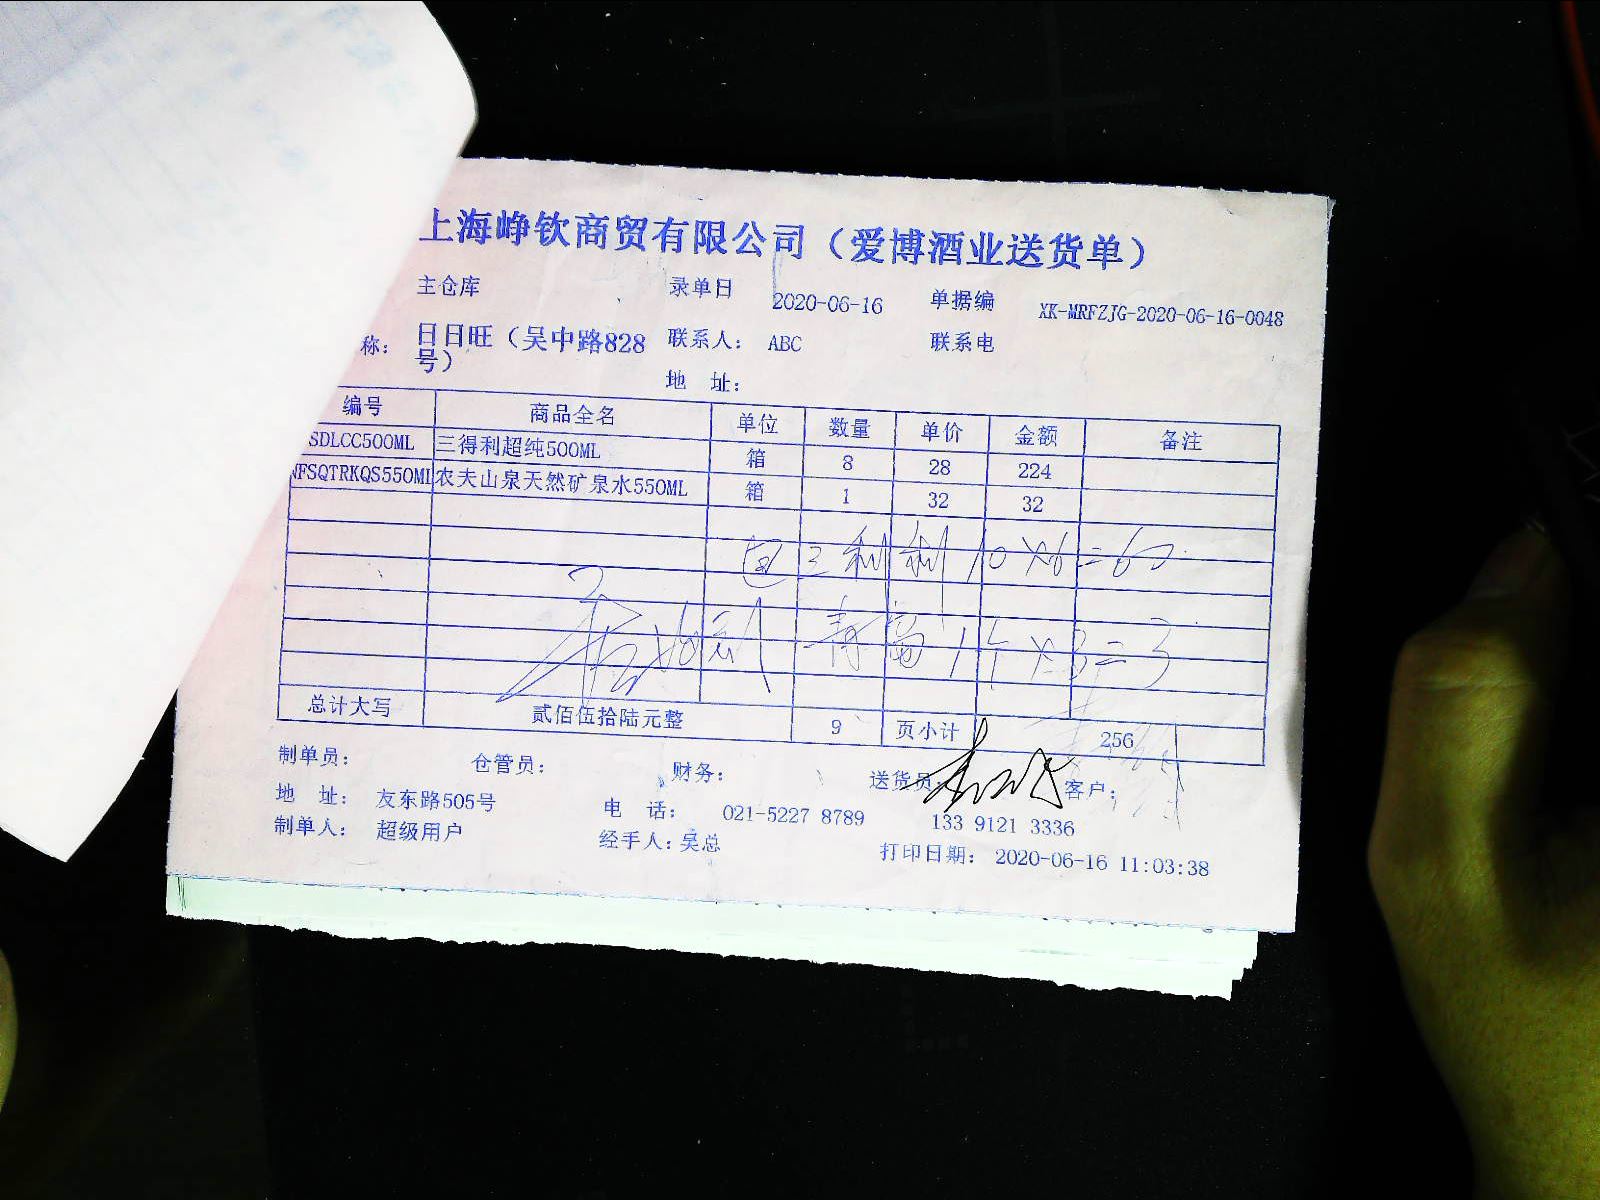 上海峥钦商贸有限公司（爱博酒业送货单）
主仓库 录单日 2020-06-16 单据编 XK-MRFZJG-2020-06-16-0048
称： 日日旺（吴中路828号） 联系人： ABC 联系电
地 址：
编号 商品全名 单位 数量 单价 金额 备注
SDLCC500ML 三得利超纯500ML 箱 8 28 224
NFSQTRKQS550ML 农夫山泉天然矿泉水550ML 箱 1 32 32
10×6=60
青岛 1个×3=3
总计大写 贰佰伍拾陆元整 9 页小计 256
制单员： 仓管员： 财务： 送货员： 客户：
地 址： 友东路505号 电 话： 021-5227 8789 133 9121 3336
制单人： 超级用户 经手人：吴总 打印日期： 2020-06-16 11:03:38